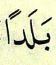 بَلَدًا